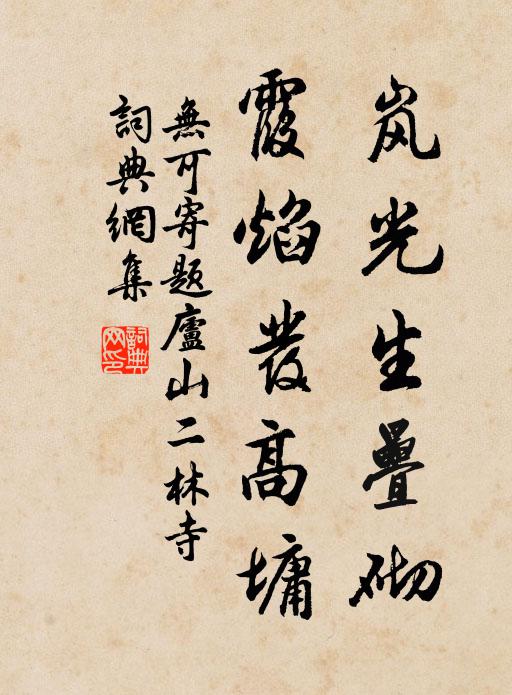 岚光生疊砌
霞焰發高墉
無可寄題廬山二林寺
詞典網集
詞典網印